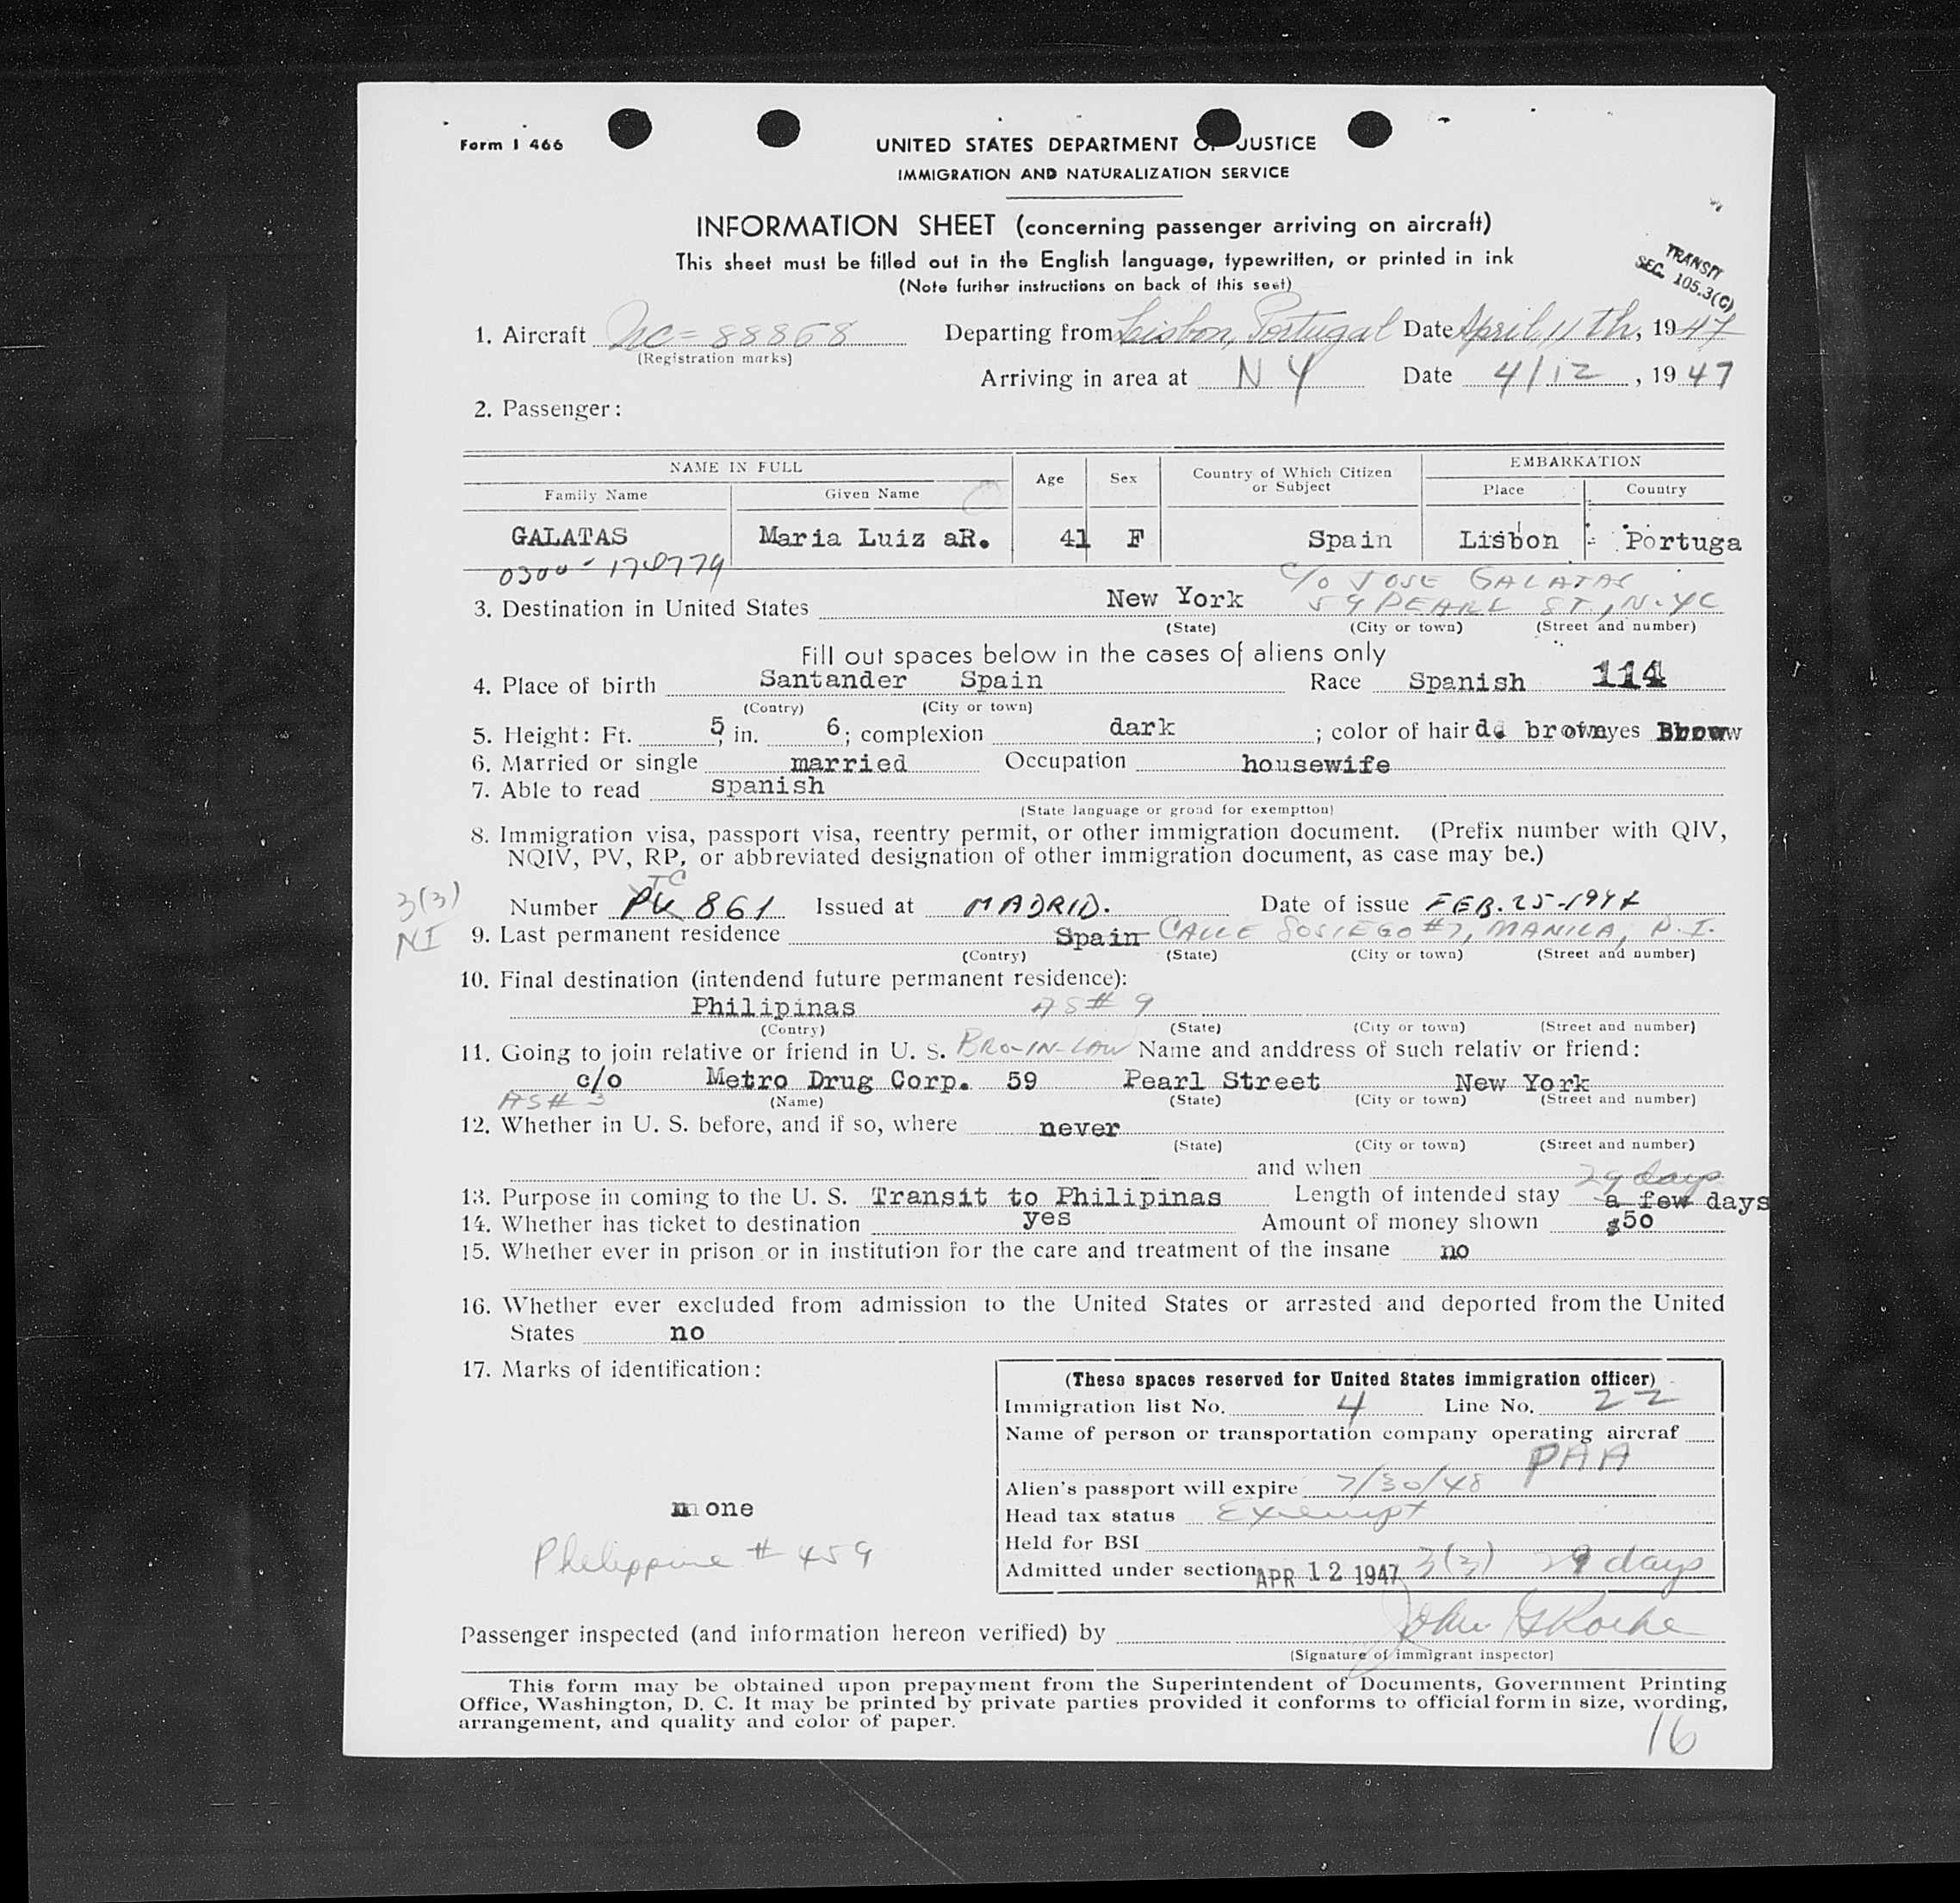 Form I 466
UNITED STATES DEPARTMENT OF JUSTICE
IMMIGRATION AND NATURALIZATION SERVICE
INFORMATION SHEET (concerning passenger arriving on aircraft)
This sheet must be filled out in the English language, typewritten, or printed in ink
(Note further instructions on back of this seet)
TRANSIT
SEC. 105.3(C)
1. Aircraft NC=88868 Departing from Lisbon, Portugal Date April 11 th, 1947
(Registration marks)
Arriving in area at NY Date 4/12, 1947
2. Passenger:
NAME IN FULL Age Sex Country of Which Citizen or Subject EMBARKATION
Family Name Given Name Place Country
GALATAS Maria Luiz aR. 41 F Spain Lisbon Portuga
0300-178779
c/o JOSE GALATAS
3. Destination in United States New York 59 PEARL ST., N.YC
(State) (City or town) (Street and number)
Fill out spaces below in the cases of aliens only
4. Place of birth Santander Spain Race Spanish 114
(Contry) (City or town)
5. Height: Ft. 5, in. 6; complexion dark; color of hair d. brown eyes Brow
6. Married or single married Occupation housewife
7. Able to read spanish
(State language or groad for exemptton)
8. Immigration visa, passport visa, reentry permit, or other immigration document. (Prefix number with QIV,
NQIV, PV, RP, or abbreviated designation of other immigration document, as case may be.)
TC
3(3) Number PV 861 Issued at MADRID. Date of issue FEB. 25-1947
NI 9. Last permanent residence Spain CALLE SOSIEGO #7, MANILA, P.I.
(Contry) (State) (City or town) (Street and number)
10. Final destination (intendend future permanent residence):
Philipinas AS # 9
(Contry) (State) (City or town) (Street and number)
11. Going to join relative or friend in U. S. BRO-IN-LAW Name and anddress of such relativ or friend:
c/o Metro Drug Corp. 59 Pearl Street New York
AS # 3 (Name) (State) (City or town) (Street and number)
12. Whether in U. S. before, and if so, where never
(State) (City or town) (Street and number)
and when
29 days
13. Purpose in coming to the U. S. Transit to Philipinas Length of intended stay a few days
14. Whether has ticket to destination yes Amount of money shown $50
15. Whether ever in prison or in institution for the care and treatment of the insane no
16. Whether ever excluded from admission to the United States or arrested and deported from the United
States no
17. Marks of identification:
none
Philippine # 459
(These spaces reserved for United States immigration officer)
Immigration list No. 4 Line No. 22
Name of person or transportation company operating aircraf
PAA
Alien's passport will expire 7/30/48
Head tax status Exempt
Held for BSI
Admitted under section APR 12 1947 3(3) 29 days
Passenger inspected (and information hereon verified) by John G Roche
(Signature of immigrant inspector)
This form may be obtained upon prepayment from the Superintendent of Documents, Government Printing
Office, Washington, D. C. It may be printed by private parties provided it conforms to official form in size, wording,
arrangement, and quality and color of paper.
16